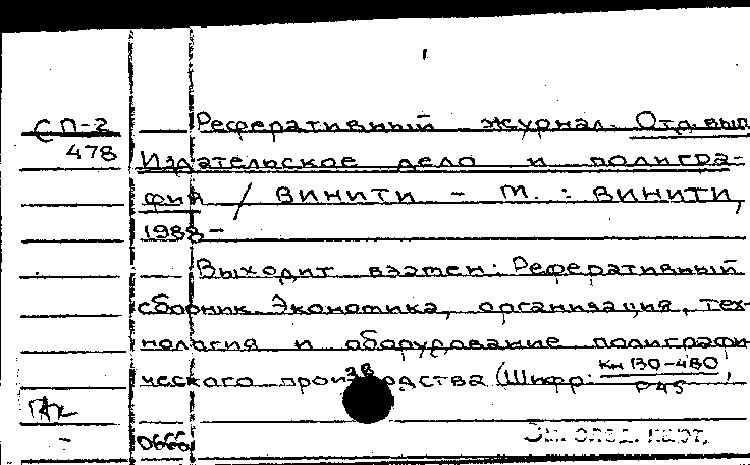 СП-2
478
Реферативный журнал. Отд. вып.
Издательское дело и полигра-
фия / ВИНИТИ - М. : ВИНИТИ,
1988-
Выходит взамен: Реферативный
сборник. Экономика, организация, тех-
нология и оборудование полиграфи-
ческого производства (Шифр: Кн 130-480
Р45
38
0666